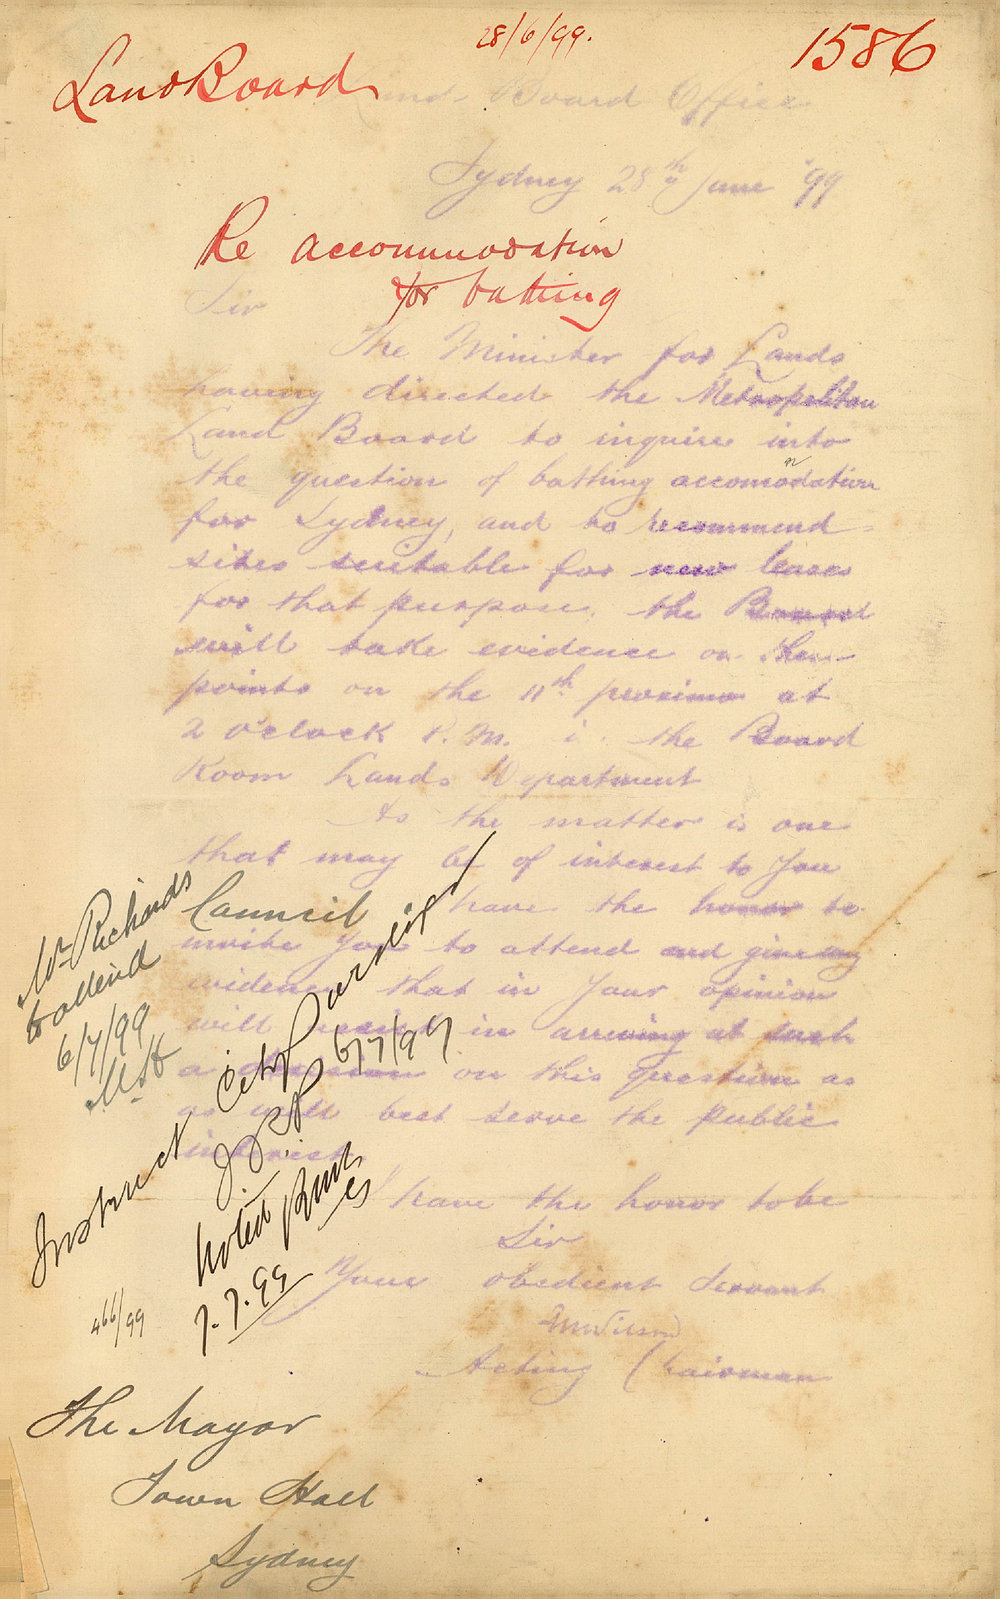 28/6/99.
1586
Land Board
Land Board Office
Sydney 28th June '99
Re accommodation
for bathing
Sir
The Minister for Lands
having directed the Metropolitan
Land Board to inquire into
the question of bathing accomodation
for Sydney, and to recommend
sites suitable for new leases
for that purpose, the Board
will take evidence on these
points on the 11th proximo at
2 o'clock P.M. in the Board
Room Lands Department
As the matter is one
that may be of interest to Your
Council I have the honor to
invite You to attend and give any
evidence that in Your opinion
will in arriving at such
a decision on this question as
as will best serve the public
interest.
I have the honor to be
Sir
Your obedient Servant
Acting Chairman
Mr Richards
to attend
6/7/99
Instruct City Surveyor
6/7/99
Noted
7.7.99
466/99
The Mayor
Town Hall
Sydney